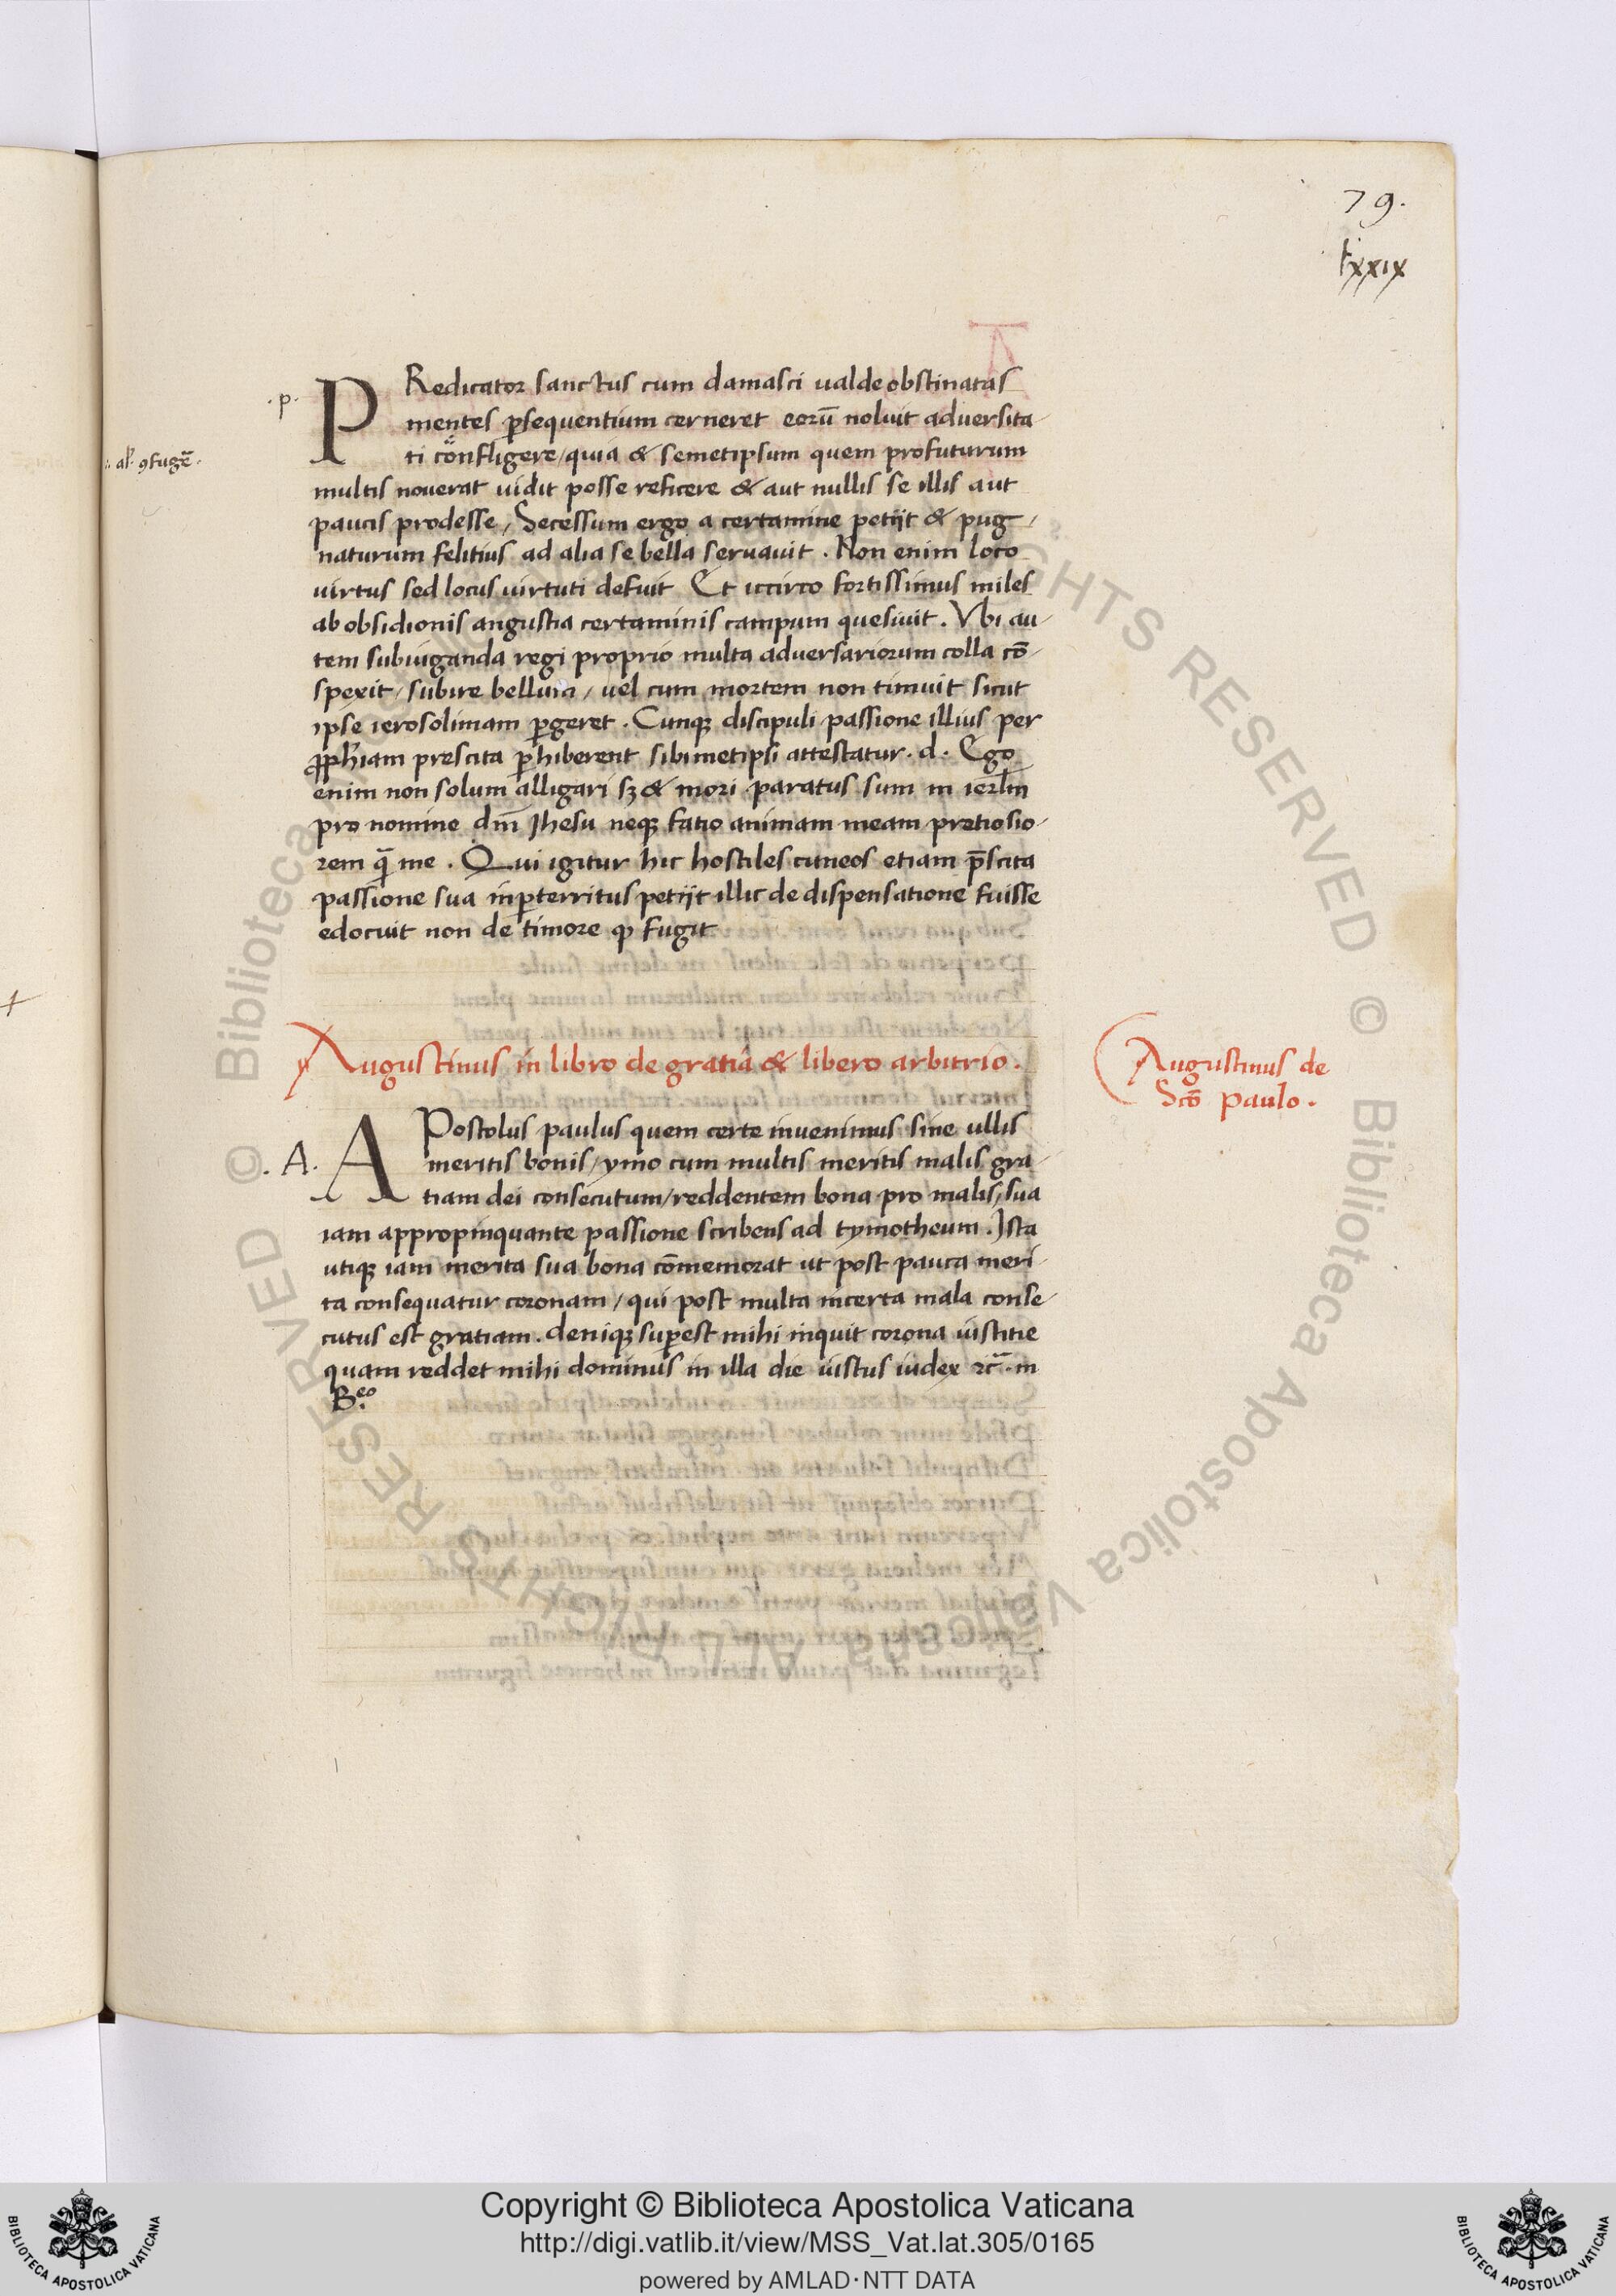 79.
lxxix
.p.
PRedicator sanctus cum damasci ualde obstinatas
mentes p̱sequentium cerneret eorū noluit adversita-
ti cōnfligere / quia & semetipsum quem profuturum
:: al' ꝯfugē.
multis noverat vidit posse reficere & aut nullis se illis aut
paucis prodesse, Secessum ergo a certamine petijt & pug-
naturum felitius ad alia se bella servavit. Non enim loco
virtus sed locus virtuti defuit Et iccirco fortissimus miles
ab obsidionis angustia certaminis campum quesivit. Vbi au-
tem subiuganda regi proprio multa adversariorum colla cō-
spexit / subire bellum / vel cum mortem non timuit sicut
ipse ierosolimam ꝑgeret. Cunqꝫ discipuli passione illius per
ꝓph'iam prescita ꝑhiberent sibimetipsi attestatur. d. Ego
enim non solum alligari sꝫ & mori paratus sum in ierl̄m
pro nomine dn̄i Jhesu neqꝫ fatio animam meam pretiosio-
rem q̄ me. Qui igitur hic hostiles cuneos etiam p̄scita
passione sua inꝑterritus petijt illic de dispensatione fuisse
edocuit non de timore ꝙ fugit
Augustinus in libro de gratia & libero arbitrio.
Augustinus de
Scō paulo.
. A.
APostolus paulus quem certe invenimus sine ullis
meritis bonis / ymo cum multis meritis malis gra-
tiam dei consecutum / reddentem bona pro malis / sua
iam appropinquante passione scribens ad tymotheum. Ista
utiqꝫ iam merita sua bona cōmemorat ut post pauca meri-
ta consequatur coronam / qui post multa incerta mala conse-
cutus est gratiam. deniqꝫ suꝑest mihi inquit corona iustitie
quam reddet mihi dominus in illa die iustus iudex ⁊c̄. in
B.eo
Copyright © Biblioteca Apostolica Vaticana
http://digi.vatlib.it/view/MSS_Vat.lat.305/0165
powered by AMLAD · NTT DATA
BIBLIOTECA APOSTOLICA VATICANA
BIBLIOTECA APOSTOLICA VATICANA
© Biblioteca Apostolica Vaticana ALL RIGHTS RESERVED
© Biblioteca Apostolica Vaticana ALL RIGHTS RESERVED